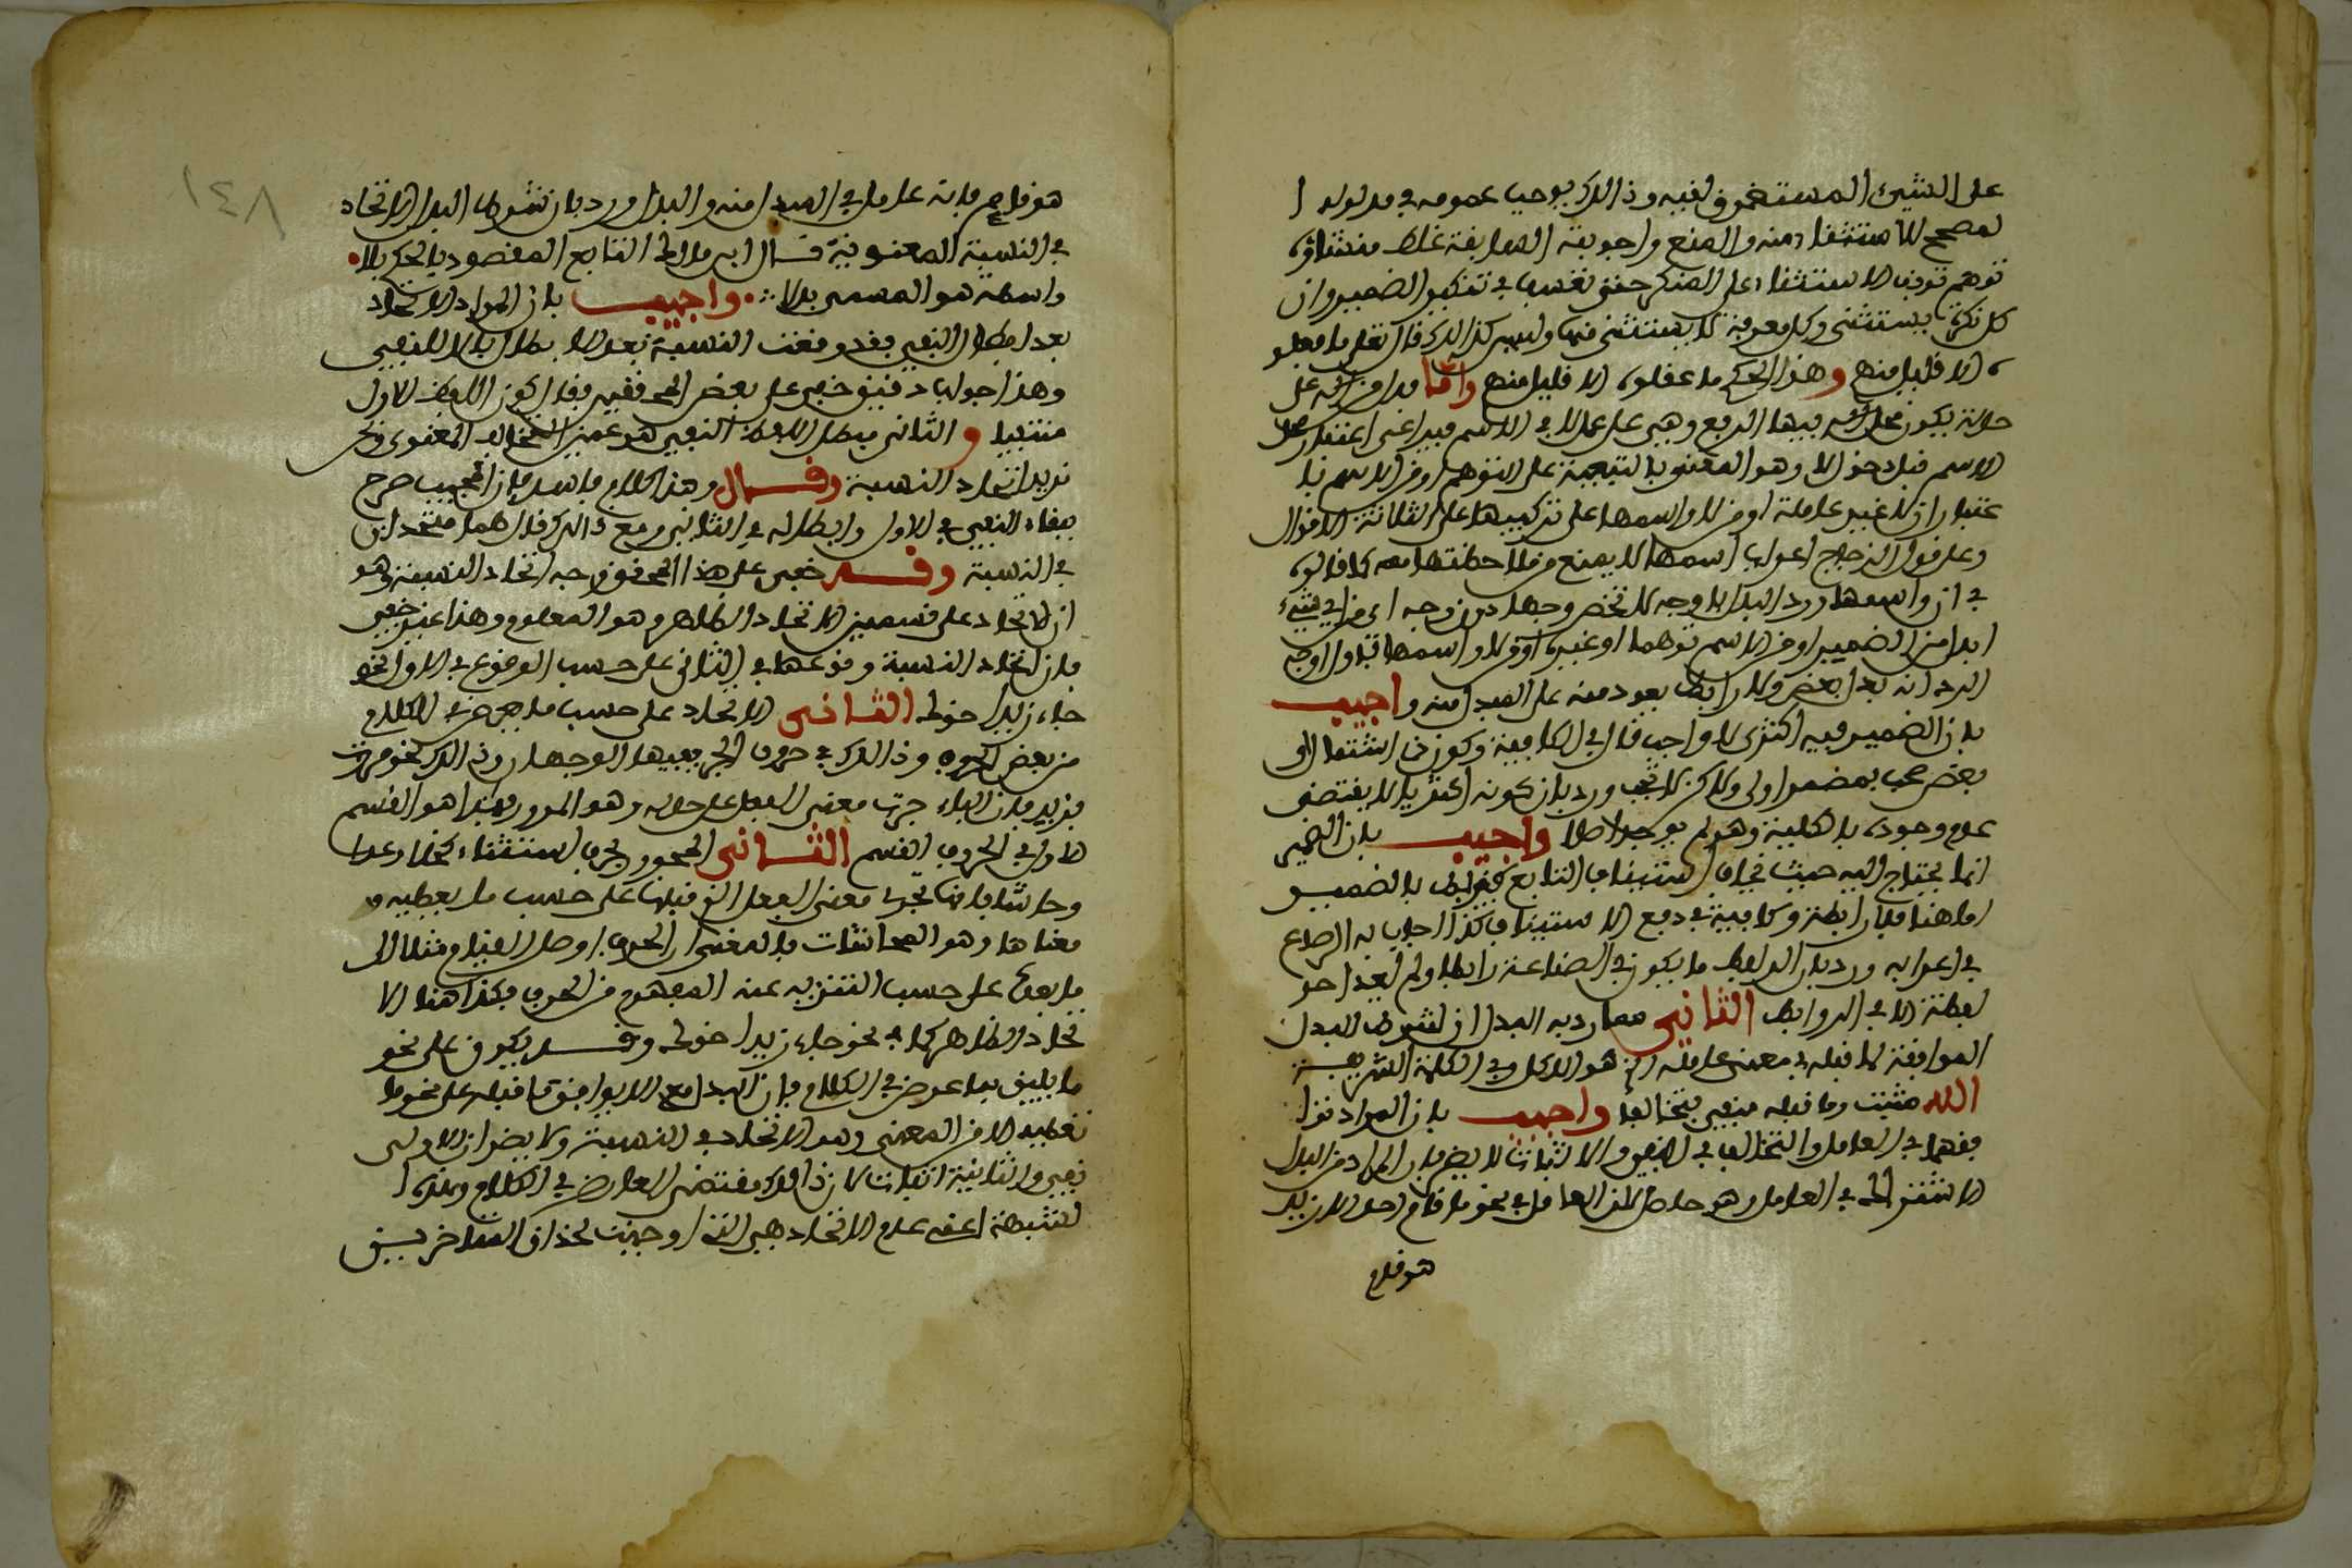 على الشيء المستغرق لغيره وذالك يوجب عمومه في مدلوله ا
لمصحح للاستثناء منه والمنع واجوبته السابقة غلط منشاؤه
توهم توقف الاستثناء على المنكر حتى تعسف في تنكير الضمير وان
كل نكرة يستثنى وكل معرفة لا يستثنى منها وليس كذالك قال تعلى ما فعلو
ه الا قليل منهم وهذا الحكم ما عقلوه الا قليل منهم واما بدل من اله على
حالة يكون محل فيها الرفع وهي على عمل لا في الاسم فيراعى اعتقاد محل
الاسم قبل دخول لا وهو المعنون بالتبعية على التوهم او من الاسم با
عتبار ان لا غير عاملة او من لا واسمها على تركيبها على الثلاثة الاقوال
وعلى قول الزجاج اعراب اسمها لا يمنع من ملاحظتها معه كما قالوه
في ان واسمها ورد البدل باوجه لا تخص وجها دون وجه اي من اي شيء
ابدل من الضمير او من الاسم توهما او غيره او من لا واسمها فاول اوجه
الرد انه بدل بعض ولا رابط يعود منه على المبدل منه واجيب
بان الضمير فيه اكثري لا واجب قال في الكافية وكون ذي اشتمال او
بعض صحب بمضمر اولى ولاكن لا يجب ورد بان كونه اكثريا لا يقتضي
عدم وجوده بالكلية وهو لم يوجد اصلا واجيب بان الضمير
انما يحتاج اليه حيث يخاف استيناف التابع فيربط بالضمير
اما هنا فالا رابطة وكافية في دفع الاستيناف كذا اجاب به الرصاع
في اعرابه ورد بان الرابط ما يكون في الصناعة رابطا ولم يعد احد
لفظة الا في الروابط الثاني مما رد به البدل ان شرط البدل
الموافقة لما قبله في معنى عامله الذي هو الاكل وفي الكلمة الشريفة
الله مثبت وما قبله منفي فتخالفا واجيب بان المراد توا
فقهما في العامل والتخالف في النفي والاثبات لا يضر فان المراد من البدل
الاشتراك في العامل وهو حاصل لان العامل في نحو ما قام احد الا زيد
هو قام
هو قام فانه عامل في المبدل منه والبدل ورد بان شرط البدل الاتحاد
في النسبة المعنوية قال ابن مالك التابع المقصود بالحكم بلا
واسطة هو المسمى بدلا واجيب بان المراد الاتحاد
بعد ابطال النفي فقد وقعت النسبة بعد الا بطلان بالا للنفي
وهذا جواب دقيق خفي على بعض المحققين فقال كون اللفظ الاول
منتفيا والثاني مبطل للفظ النفي هو عين التخالف المعنوي ونحن
نريد اتحاد النسبة وقال وهذا كلام فاسد فان المجيب صرح
ببقاء النفي في الاول وابطاله في الثاني ومع ذالك قال هما متحدان
في النسبة وقد خفى على هذا المحقق وجه اتحاد النسبة وهو
ان الاتحاد على قسمين الاتحاد الظاهر وهو المعلوم وهذا غير خفي
فان اتحاد النسبة وقوعها في الثاني على حسب الوقوع في الاول نحو
جاء زيد اخوك الثاني الاتحاد على حسب ما يعرض في الكلام
من بعض الحروف وذالك في حروف الجر ففيها الوجهان وذالك نحو مررت
بزيد فان الباء جرت معنى الفعل على حاله وهو المرور فهذا هو القسم
الاول في الحروف القسم الثاني المجرور بحرف استثناء كخلا وعدا
وحاشا فانها تجر معنى الفعل الذي قبلها على حسب ما يعطيه م
معناها وهو المحاشات فالمعنى ان الحرف اوصل القيام مثلا الى
ما بعده على حسب التنزيه عنه المفهوم من الحرف فكذا هنا الا
تحاد الظاهر كما في نحو جاء زيد اخوك وقد يكون على نحو
ما يليق بما عرض في الكلام فان البدل مع الا يوافق ما قبله على نحو ما
تعطيه الا من المعنى وهو الاتحاد في النسبة ولا يضر ان الاولى
نفي والثانية اثبات لان ذالك مقتضى العارض في الكلام وهذه ا
لشبهة اعني عدم الاتحاد هي التي اوجبت لحذاق المتاخرين